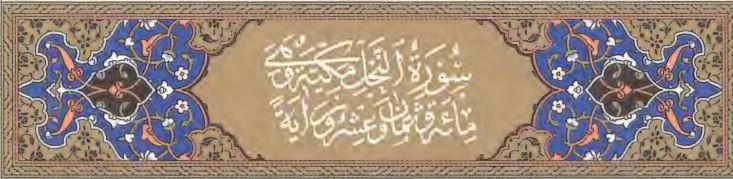 سُورَةُ النَّحْلِ مَكِّيَّةٌ وَهِيَ
مِائَةٌ وَثَمَانٍ وَعِشْرُونَ آيَةً